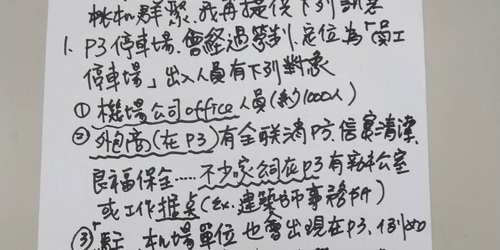 桃机群聚,我再提供下列訊息
1. P3停車場,曾經過管制,定位為「員工
停車場」出入人員有下列對象
① 機場公司office人員(約1000人)
② 外包商(在P3)有全联消防、信實清潔、
良福保全……不少家公司在P3有辦公室
或工作據点(ex.建築師事務所)
③「駐」机場單位也會出現在P3,例如